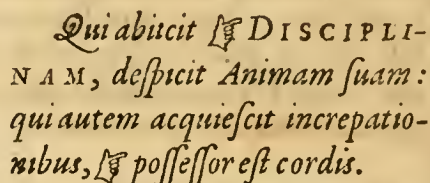 Qui abiicit ☞ DISCIPLI-
NAM, deſpicit Animam ſuam:
qui autem acquieſcit increpatio-
nibus, ☞ poſſeſſor eſt cordis.